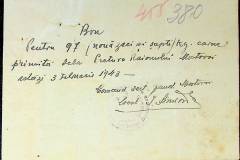 455 380
Bon
Pentru 97 (nouăzeci și șapte) kg. carne
primită dela Pretura Raionului Mostovoi
astăzi 3 Februarie 1943 –
Comand. sect. jand. Mostovoi